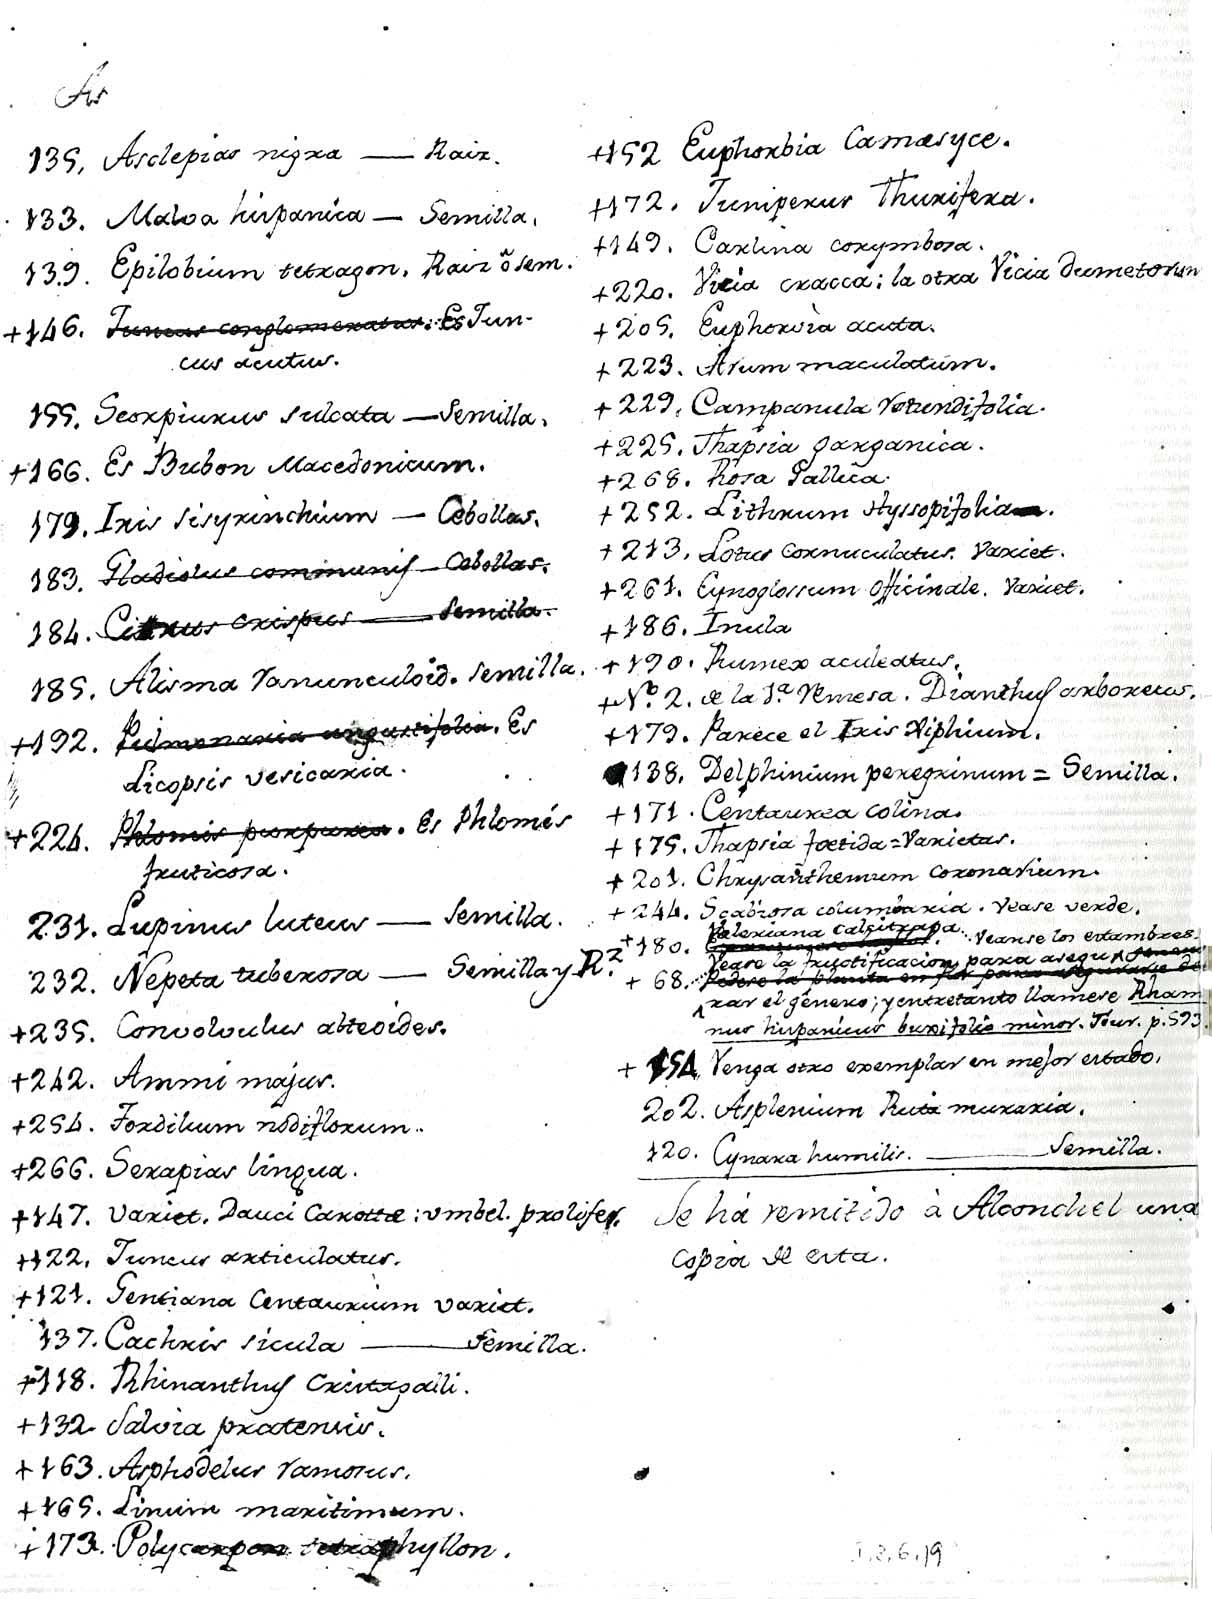 135. Asclepias nigra — Raiz.
133. Malva hispanica — Semilla.
139. Epilobium tetragon. Raiz ô sem.
+146. Juncus conglomeratus. Es Jun-
cus acutus.
155. Scorpiurus sulcata — Semilla.
+166. Es Bubon Macedonicum.
179. Iris sisyrinchium — Cebollas.
183. Gladiolus communis — Cebollas.
184. crispus — Semilla.
185. Alisma ranunculoid. semilla.
+192. Pulmonaria angustifolia. Es
Licopsis vesicaria.
+224. Phlomis purpurea. Es Phlomis
fruticosa.
231. Lupinus luteus — Semilla.
232. Nepeta tuberosa — Semilla y Rz.
+235. Convolvulus alteoides.
+242. Ammi majus.
+254. Tordilium nodiflorum.
+266. Serapias lingua.
+147. variet. Dauci Carottæ: umbel. prolifer.
+122. Juncus articulatus.
+121. Gentiana Centaurium variet.
137. Cachris sicula — Semilla.
+118. Rhinanthus Cristagalli.
+132. Salvia pratensis.
+163. Asphodelus ramosus.
+165. Linum maritimum.
+173. Polycarpon tetraphyllon.
+152 Euphorbia Camæsyce.
+172. Juniperus Thurifera.
+149. Carlina corymbosa.
+220. Vicia cracca; la otra Vicia dumetorum
+205. Euphorvia acuta.
+223. Arum maculatum.
+229. Campanula rotundifolia.
+225. Thapsia garganica.
+268. Rosa Gallica.
+252. Lithrum Hyssopifolia.
+213. Lotus cornuculatus. Variet.
+261. Cynoglossum officinale. Variet.
+186. Inula
+190. Rumex aculeatus.
+No. 2. de la 1.a Remesa. Dianthus arboreus.
+179. Parece el Iris Xiphium.
138. Delphinium peregrinum = Semilla.
+171. Centaurea colina.
+175. Thapsia fœtida = Varietas.
+201. Chrysanthemum coronarium.
+244. Scabiosa columbaria. Vease verde.
Valeriana calcitrapa.
+180. Veanse los estambres.
Vease la fructificacion para asegu
+68. Pidese la planta en flor para asegurarse de
rar el género; y entretanto llamese Rham
nus hispanicus buxifolio minor. Tour. p. 593.
+154. Venga otro exemplar en mejor estado.
202. Asplenium Ruta muraria.
120. Cynara humilis. — Semilla.
Se há remitido à Alconchel una
copia de esta.